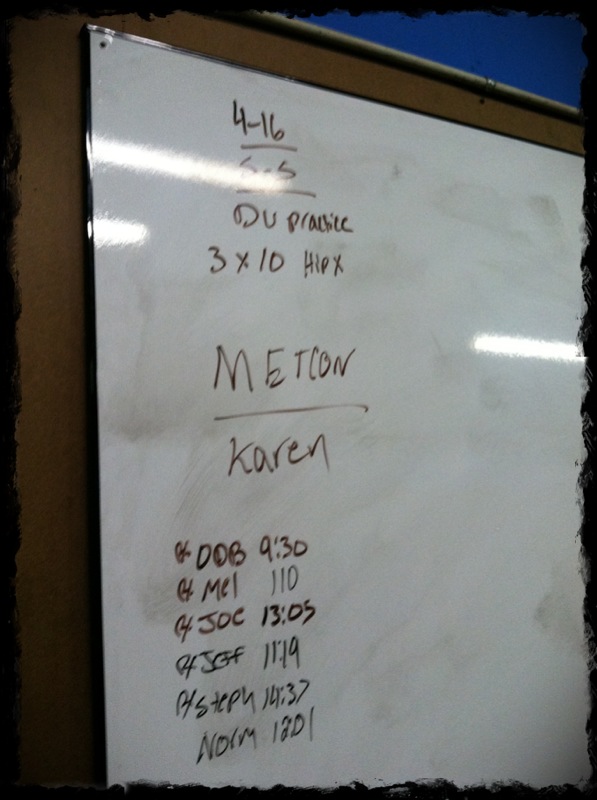 4-16
S-S
DU practice
3 x 10 Hip X
METCON
Karen
DOB 9:30
Mel 110
JOE 13:05
Jeff 11:19
Steph 14:37
Norm 1201